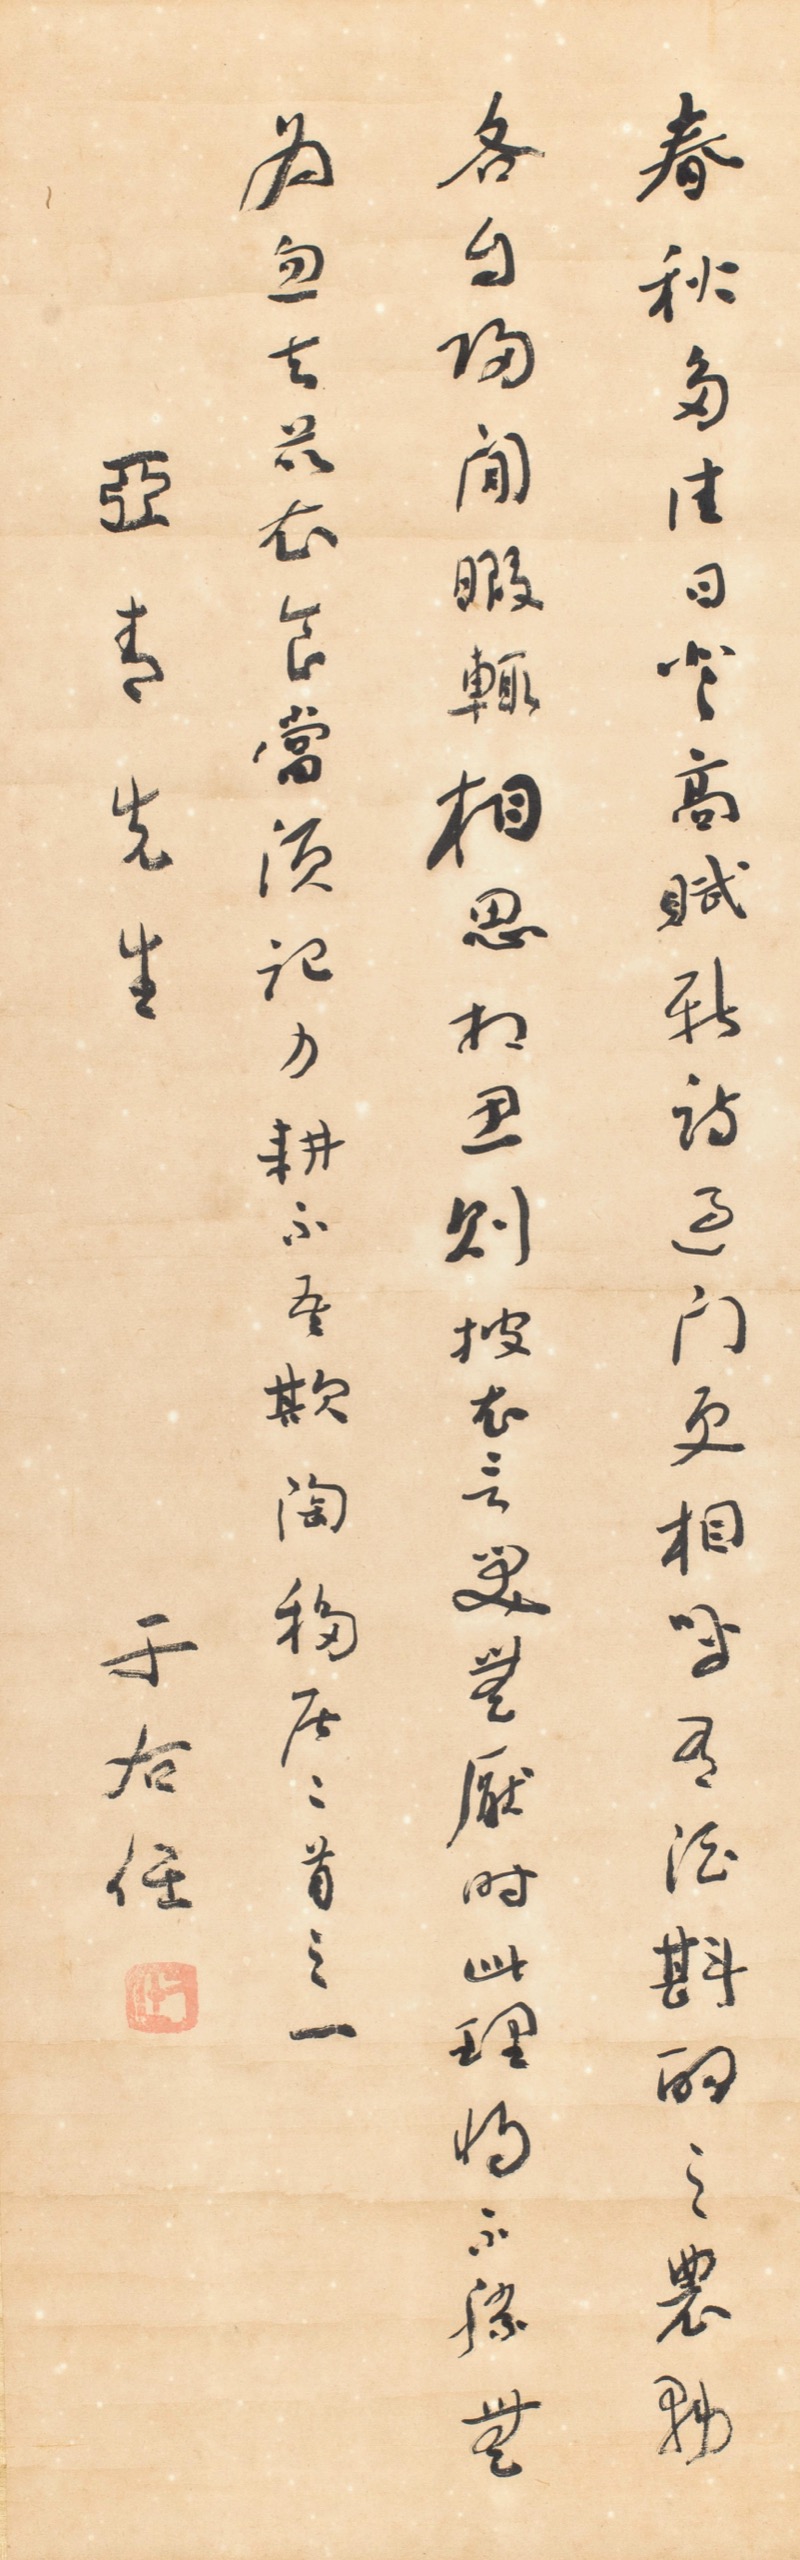 春秋多佳日登高賦新詩過門更相呼有酒斟酌之農務
各自歸閒暇輒相思相思則披衣言笑無厭時此理將不勝無
為忽去茲衣食當須記力耕不吾欺陶移居二首之一
亞青先生
于右任